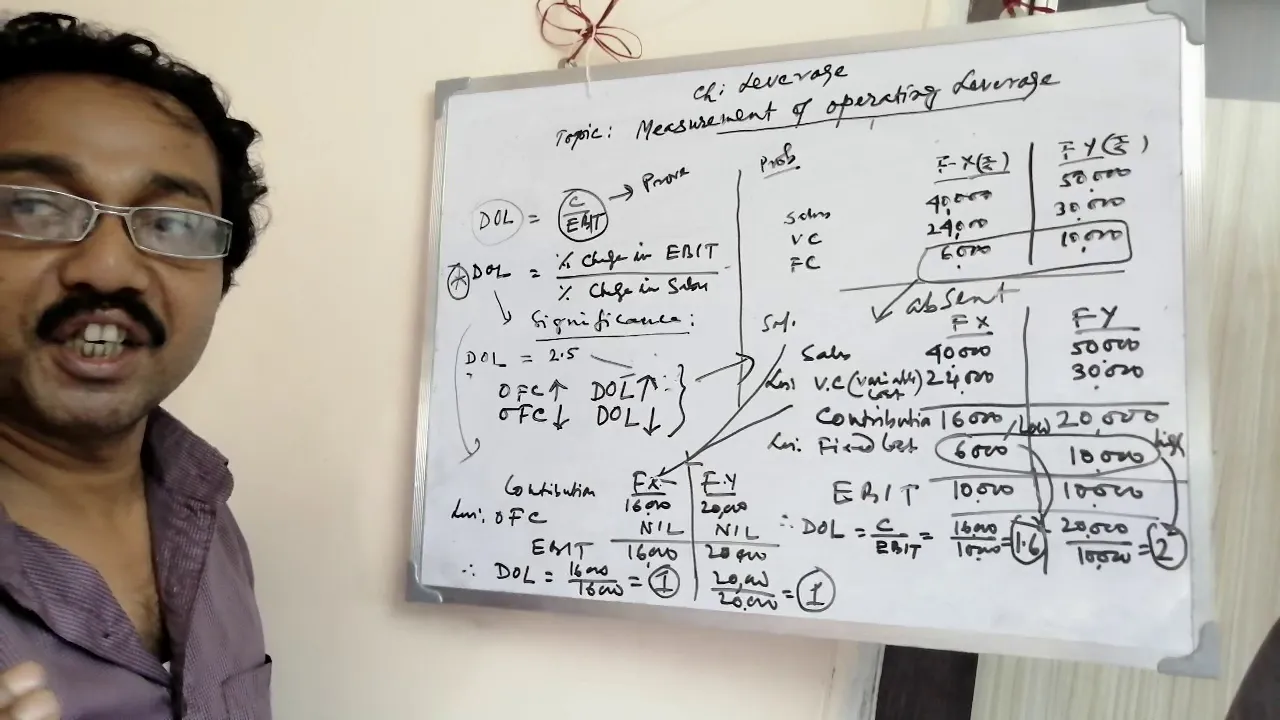 Ch: Leverage
Topic: Measurement of operating Leverage
DOL = C/EBIT → Prove
DOL = % Change in EBIT / % Change in Sales
Significance:
DOL = 2.5
OFC↑ DOL↑
OFC↓ DOL↓
Prob.
F-X(₹) F Y(₹)
Sales 40,000 50,000
VC 24,000 30,000
FC 6,000 10,000
absent
Sol.
FX FY
Sales 40000 50000
Less: V.C (variable cost) 24000 30,000
Contribution 16000 20,000
Less: Fixed Cost 6000 Low 10,000 high
EBIT 10,000 10,000
∴ DOL = C/EBIT = 16,000/10,000 = 1.6 20,000/10,000 = 2
FX FY
Contribution 16,000 20,000
Less: OFC NIL NIL
EBIT 16,000 20,000
∴ DOL = 16000/16000 = 1 20,000/20,000 = 1